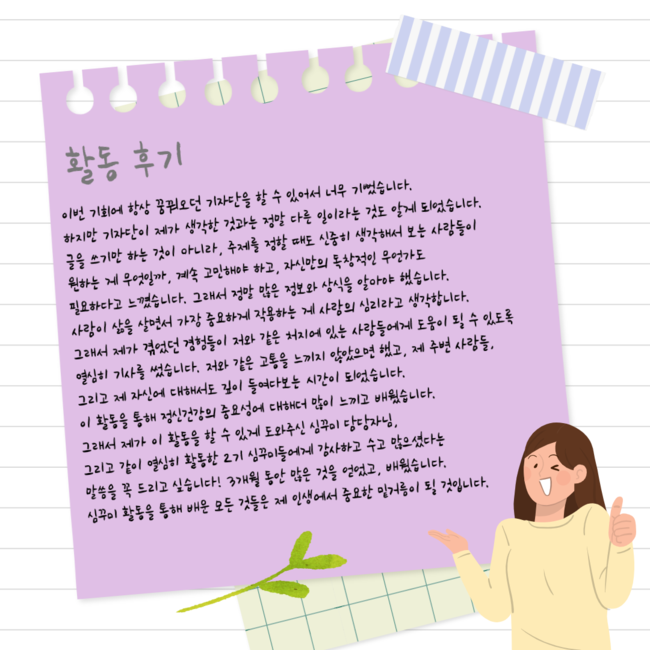 활동 후기
이번 기회에 항상 꿈꿔오던 기자단을 할 수 있어서 너무 기뻤습니다.
하지만 기자단이 제가 생각한 것과는 정말 다른 일이라는 것도 알게 되었습니다.
글을 쓰기만 하는 것이 아니라, 주제를 정할 때도 신중히 생각해서 보는 사람들이
원하는 게 무엇일까, 계속 고민해야 하고, 자신만의 독창적인 무언가도
필요하다고 느꼈습니다. 그래서 정말 많은 정보와 상식을 알아야 했습니다.
사람이 삶을 살면서 가장 중요하게 작용하는 게 사람의 심리라고 생각합니다.
그래서 제가 겪었던 경험들이 저와 같은 처지에 있는 사람들에게 도움이 될 수 있도록
열심히 기사를 썼습니다. 저와 같은 고통을 느끼지 않았으면 했고, 제 주변 사람들,
그리고 제 자신에 대해서도 깊이 들여다보는 시간이 되었습니다.
이 활동을 통해 정신건강의 중요성에 대해더 많이 느끼고 배웠습니다.
그래서 제가 이 활동을 할 수 있게 도와주신 심꾸미 담당자님,
그리고 같이 열심히 활동한 2기 심꾸미들에게 감사하고 수고 많으셨다는
말씀을 꼭 드리고 싶습니다! 3개월 동안 많은 것을 얻었고, 배웠습니다.
심꾸미 활동을 통해 배운 모든 것들은 제 인생에서 중요한 밑거름이 될 것입니다.